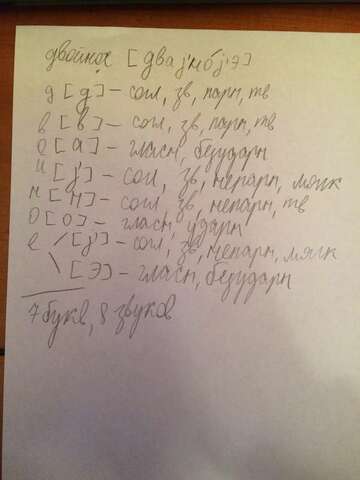 двойное [двај'но́ј'э]
д [д] – согл, зв, парн, тв
в [в] – согл, зв, парн, тв
о [а] – гласн, безударн
й [j] – согл, зв, непарн, мягк
н [н] – согл, зв, непарн, тв
о [о] – гласн, ударн
е / [j] – согл, зв, непарн, мягк
\ [э] – гласн, безударн
7 букв, 8 звуков